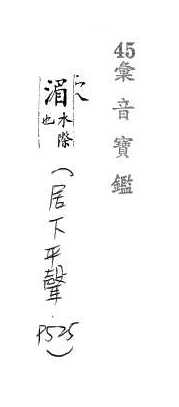 45彙音寶鑑
湄水際也
(居下平聲P525)